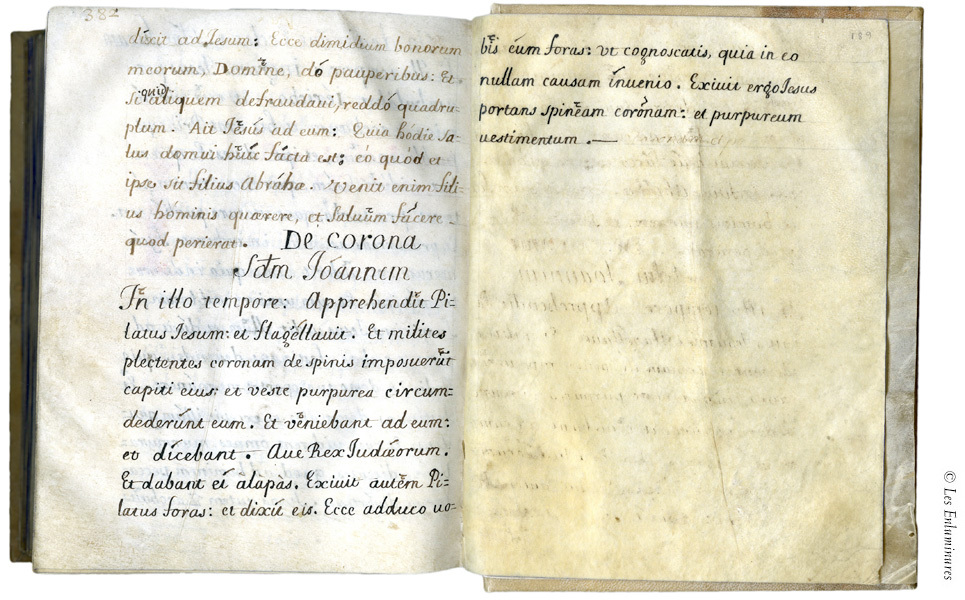 382
dixit ad Jesum: Ecce dimidium bonorum
meorum, Domine, dó pauperibus: Et
si quid aliquem defraudaui, reddó quadru-
plum. Ait Jesús ad eum: Quia hódie sa-
lus domui huíc fácta est; eó quod et
ipse sit filius Abráhæ. Venit enim fili-
us hóminis quærere, et saluum fácere
quod perierat. De corona
Sdm Joánnem
In illo tempore: Apprehendit Pi-
latus Jesum: et flagellauit. Et milites
plectentes coronam de spinis imposuerút
capiti eius: et veste purpurea circum-
dedérunt eum. Et véniebant ad eum:
et dícebant. Aue Rex Judæorum.
Et dabant eí alapas. Exiuit autem Pi-
latus foras: et dixít eis. Ecce adduco uo-
189
bis éum foras: vt cognoscatis, quia in eo
nullam causam ínuenio. Exiuit ergo Jesus
portans spineam corónam: et purpureum
uestimentum.—
© Les Enluminures